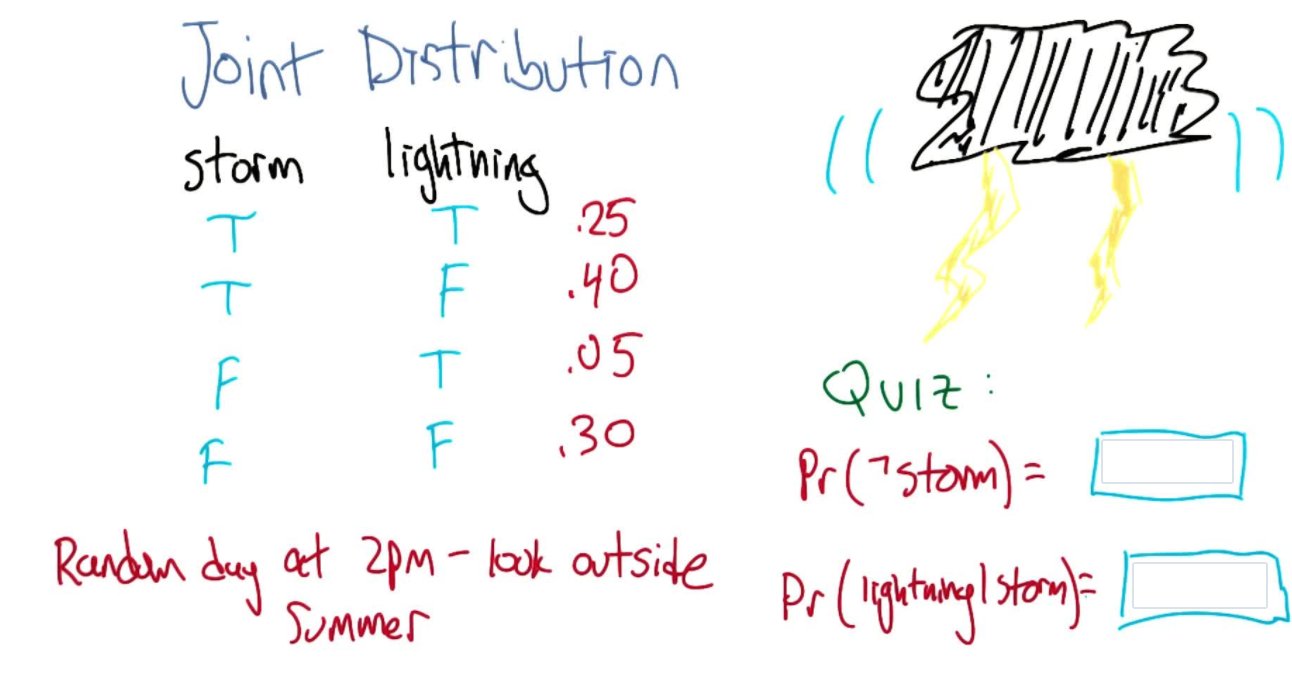 Joint Distribution
storm lightning
T T .25
T F .40
F T .05
F F .30
Random day at 2pm - look outside
summer
Quiz:
Pr(¬storm) =
Pr(lightning|storm)=